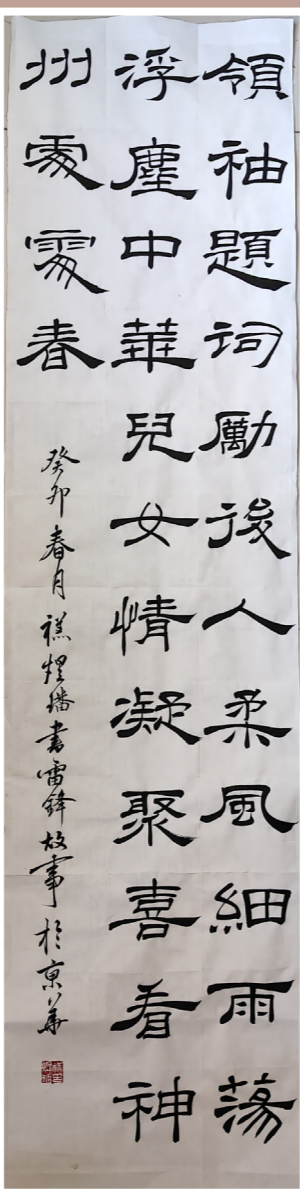 領袖題詞勵後人柔風細雨蕩
浮塵中華兒女情凝聚喜看神
州處處春
癸卯春月禚煜書雷鋒故事於京華